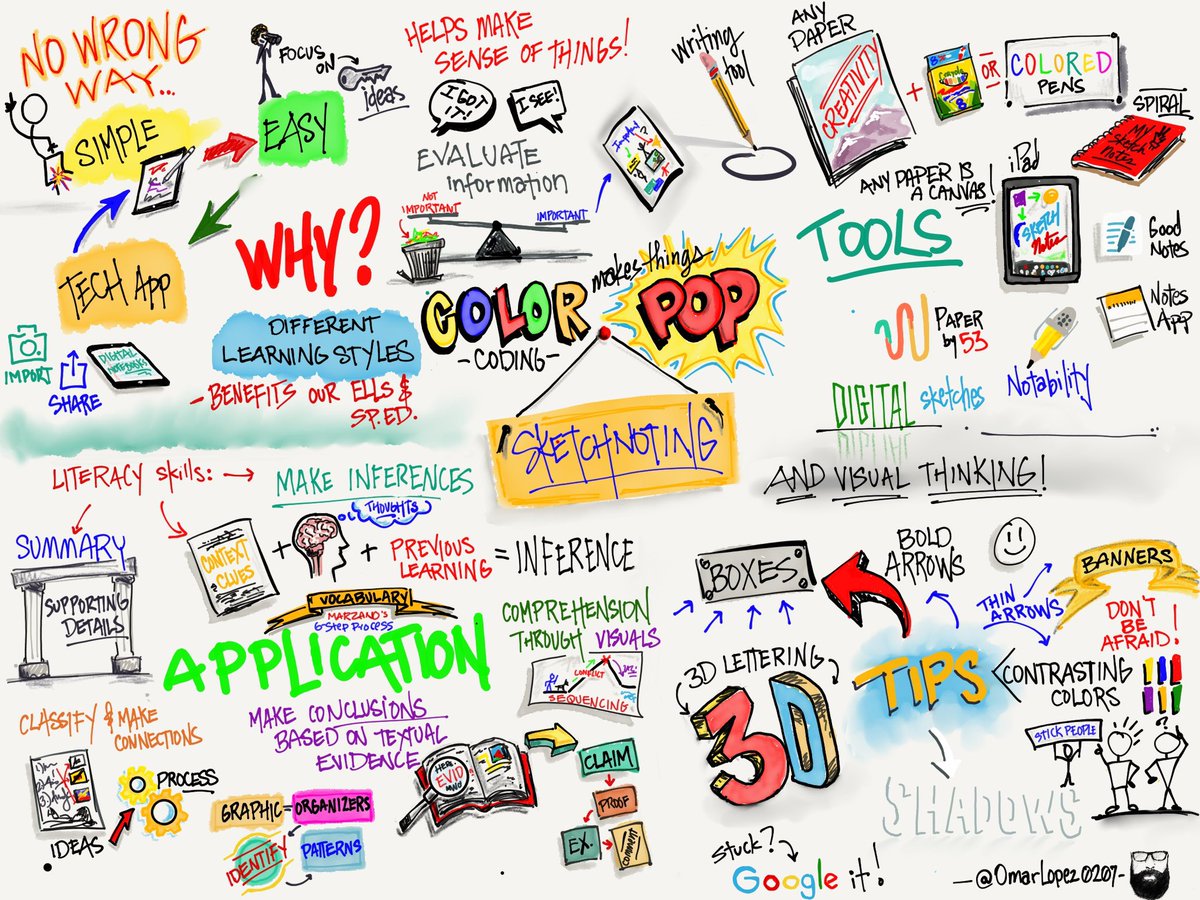 NO WRONG
WAY...
SIMPLE
FOCUS
ON
Ideas
EASY
TECH App
IMPORT
SHARE
DIGITAL
NOTEBOOKS
WHY?
DIFFERENT
LEARNING STYLES
- BENEFITS OUR ELLS &
SP.ED.
HELPS MAKE
SENSE OF THINGS!
I GOT
IT!
I SEE!
EVALUATE
information
NOT
IMPORTANT
IMPORTANT
Important
writing
tool
COLOR
- CODING -
makes things
POP
SKETCHNOTING
AND VISUAL THINKING!
ANY
PAPER
CREATIVITY
+
Crayola
8
OR
COLORED
PENS
SPIRAL
MY
Sketch
Notes
ANY PAPER IS
A CANVAS!
iPad
SKETCH
Notes
TOOLS
Good
Notes
Notes
App
PAPER
by 53
Notability
DIGITAL sketches
LITERACY skills:
MAKE INFERENCES
THOUGHTS
SUMMARY
SUPPORTING
DETAILS
CONTEXT
CLUES
+
+ PREVIOUS
LEARNING
= INFERENCE
VOCABULARY
MARZANO'S
6-Step PROCESS
APPLICATION
COMPREHENSION
THROUGH VISUALS
CONFLICT
SEQUENCING
CLASSIFY & MAKE
CONNECTIONS
IDEAS
PROCESS
MAKE CONCLUSIONS
BASED ON TEXTUAL
EVIDENCE
GRAPHIC = ORGANIZERS
IDENTIFY
PATTERNS
HERE.
EVID
CLAIM
PROOF
EX.
comment
BOXES
BOLD
ARROWS
THIN
ARROWS
BANNERS
DON'T
BE
AFRAID!
3D LETTERING
3D
TIPS
CONTRASTING
COLORS
STICK PEOPLE
?
SHADOWS
STUCK?
Google it!
- @OmarLopez0207-